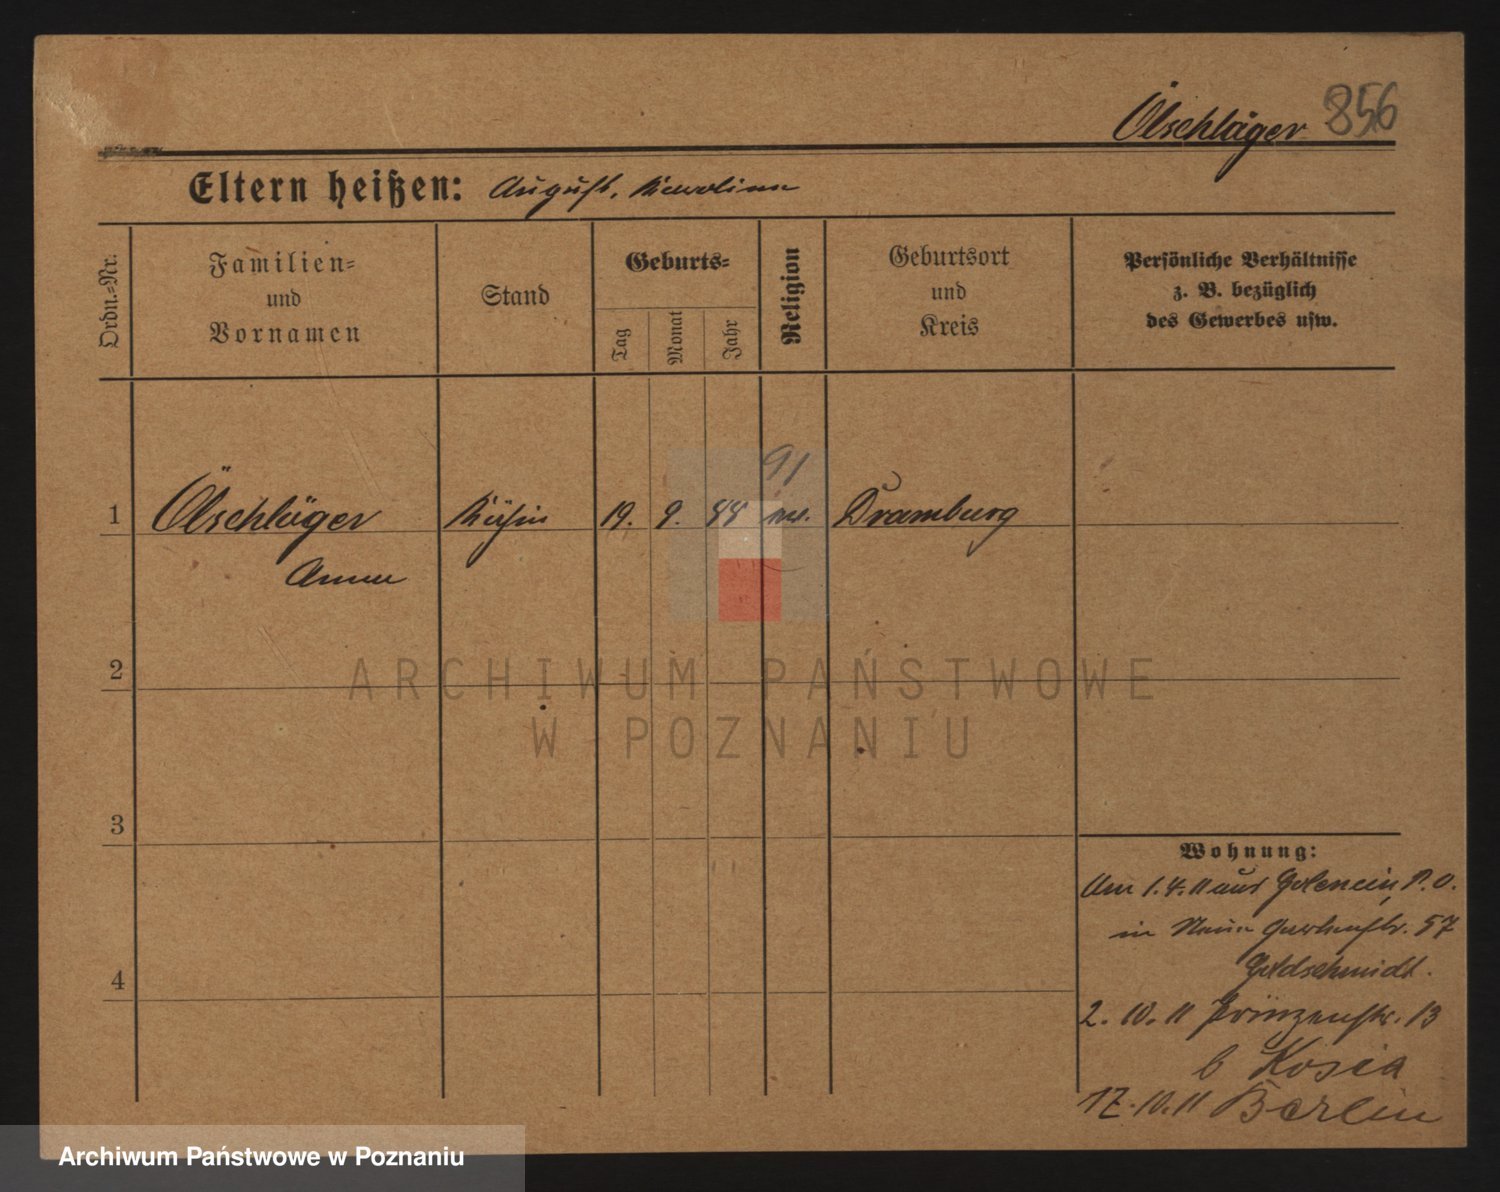 Ölschläger 856
Eltern heißen: August, Karoline
Ordn.-Nr.
Familien-
und
Vornamen
Stand
Geburts-
Tag
Monat
Jahr
Religion
Geburtsort
und
Kreis
Persönliche Verhältnisse
z. B. bezüglich
des Gewerbes usw.
91
1 Ölschläger 19. 9. Dramburg
Anna
2
ARCHIWUM PAŃSTWOWE
W POZNANIU
3
Wohnung:
Am 1.4.11 aus P.O.
in Neue Gartenstr. 57
Goldschmidt.
4
2. 10. 11 Prinzenstr. 13
b Kosia
17. 10. 11 Berlin
Archiwum Państwowe w Poznaniu